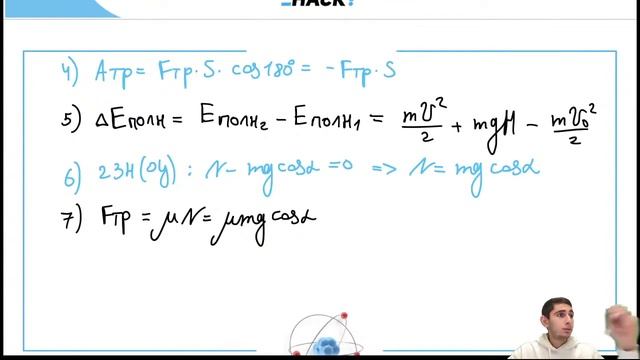 HACK!
4) Aтр = Fтр · S · cos180° = -Fтр · S
5) ΔEполн = Eполн₂ - Eполн₁ = mV²/2 + mgH - mV₀²/2
6) 2ЗН(Oy): N - mgcosα = 0 => N = mgcosα
7) Fтр = μN = μmgcosα